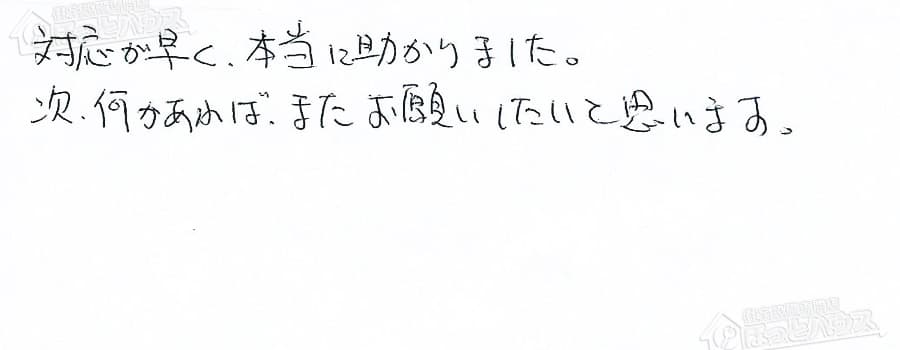 対応が早く、本当に助かりました。
次、何かあれば、またお願いしたいと思います。
ほっとハウス